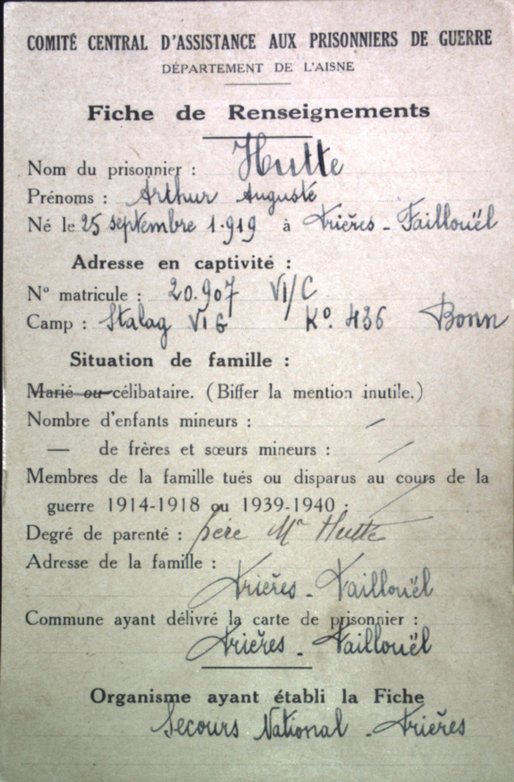 COMITÉ CENTRAL D'ASSISTANCE AUX PRISONNIERS DE GUERRE
DÉPARTEMENT DE L'AISNE
Fiche de Renseignements
Nom du prisonnier : Hutte
Prénoms : Arthur Auguste
Né le 25 septembre 1.919 à Frières - Faillouël
Adresse en captivité :
N° matricule : 20.907 VI/C
Camp : Stalag VI G K°. 436 Bonn
Situation de famille :
Marié ou célibataire. (Biffer la mention inutile.)
Nombre d'enfants mineurs : /
— de frères et sœurs mineurs : /
Membres de la famille tués ou disparus au cours de la
guerre 1914-1918 ou 1939-1940 : /
Degré de parenté : père Mr Hutte
Adresse de la famille :
Frières - Faillouël
Commune ayant délivré la carte de prisonnier :
Frières - Faillouël
Organisme ayant établi la Fiche
Secours National - Frières